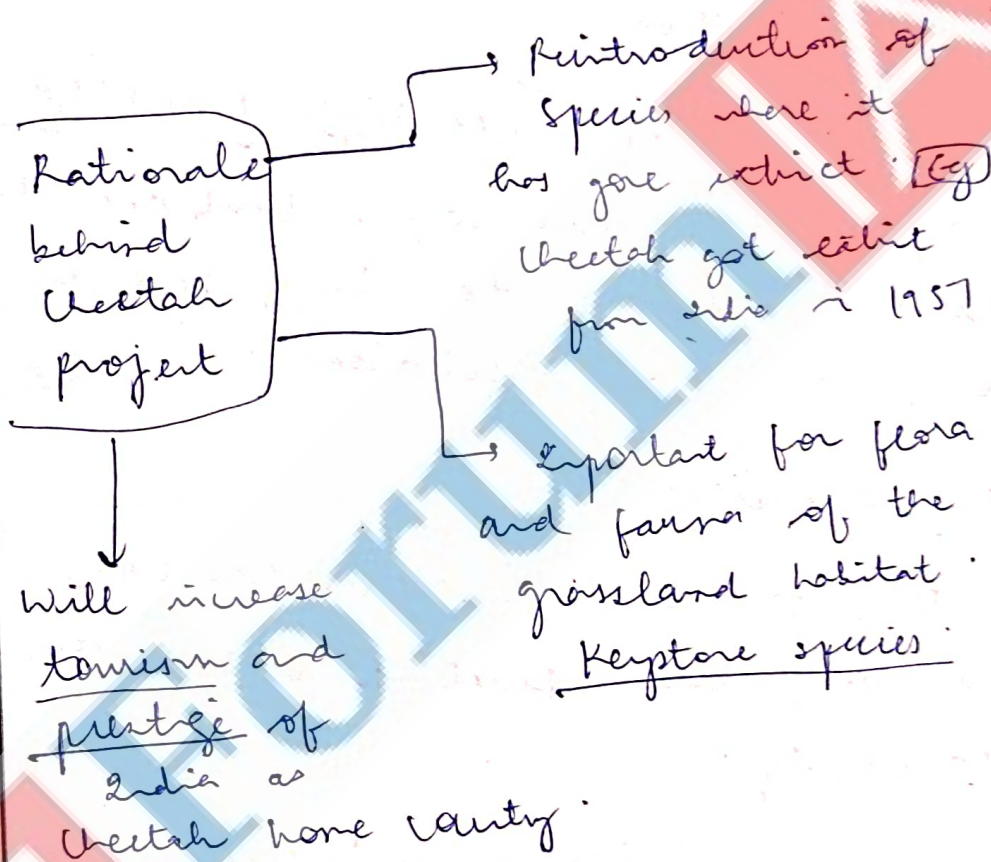 Rationale
behind
Cheetah
project
Reintroduction of
species where it
has gone extinct. Eg
Cheetah got extinct
from India in 1957
Important for flora
and fauna of the
grassland habitat.
Keystone species.
Will increase
tourism and
prestige of
India as
Cheetah home country.
Forum IA